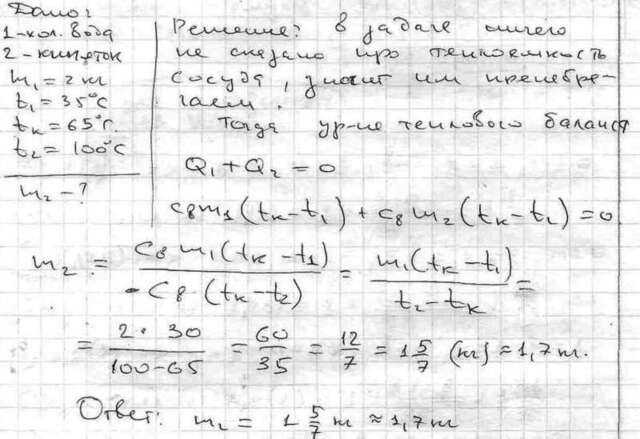 Дано:
1-хол. вода
2-кипяток
m₁ = 2 кг
t₁ = 35°C
tк = 65°C.
t₂ = 100°C
m₂ - ?
Решение: в задаче ничего
не сказано про теплоемкость
сосуда, значит им пренебре-
гаем.
Тогда ур-ие теплового баланса
Q₁ + Q₂ = 0
cвm₁(tк-t₁) + cвm₂(tк-t₂) = 0.
m₂ = cвm₁(tк-t₁) / -cв(tк-t₂) = m₁(tк-t₁) / t₂-tк =
= 2·30 / 100-65 = 60/35 = 12/7 = 1 5/7 (кг) ≈ 1,7 кг.
Ответ: m₂ = 1 5/7 кг ≈ 1,7 кг